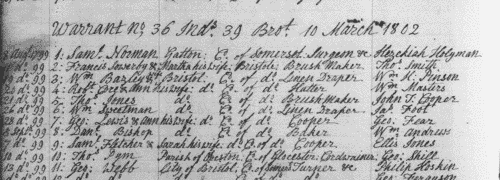 Warrant No. 36 Ind. 39 Bro. 10 March 1802
99 1: Saml. Norman Yatton Co. of Somerset Surgeon & Hezekiah Holyman
do. 99 2: Francis & Martha his wife Bristol Brush Maker Thos. Smith
do. 99 3: Wm. Bristol Co. of do. Linen Draper Wm. K. Pinson
do. 99 4: Robt. & Ann his wife do. Co. of do. Hatter Wm. Masters
do. 99 5: Thos. Jones do. Co. of do. Brush Maker John T. Cooper
do. 99 6: Wm. do. Co. of do. Linen Draper Jos. Foot
do. 99 7: Geo. Lewis & Ann his wife do. Co. of do. Cooper Geo. Fear
Sept. 99 8: Danl. Bishop do. Co. of do. Baker Wm. Andrews
do. 99 9: Saml. Fletcher & Sarah his wife do. Co. of do. Cooper Ellis Jones
do. 99 10: Thos. Pym Parish of Co. of Glocester Cordwainer Geo.
do. 99 11: Geo. Webb City of Bristol Co. of Turner & Philip Hoskin
Geo. Ferguson